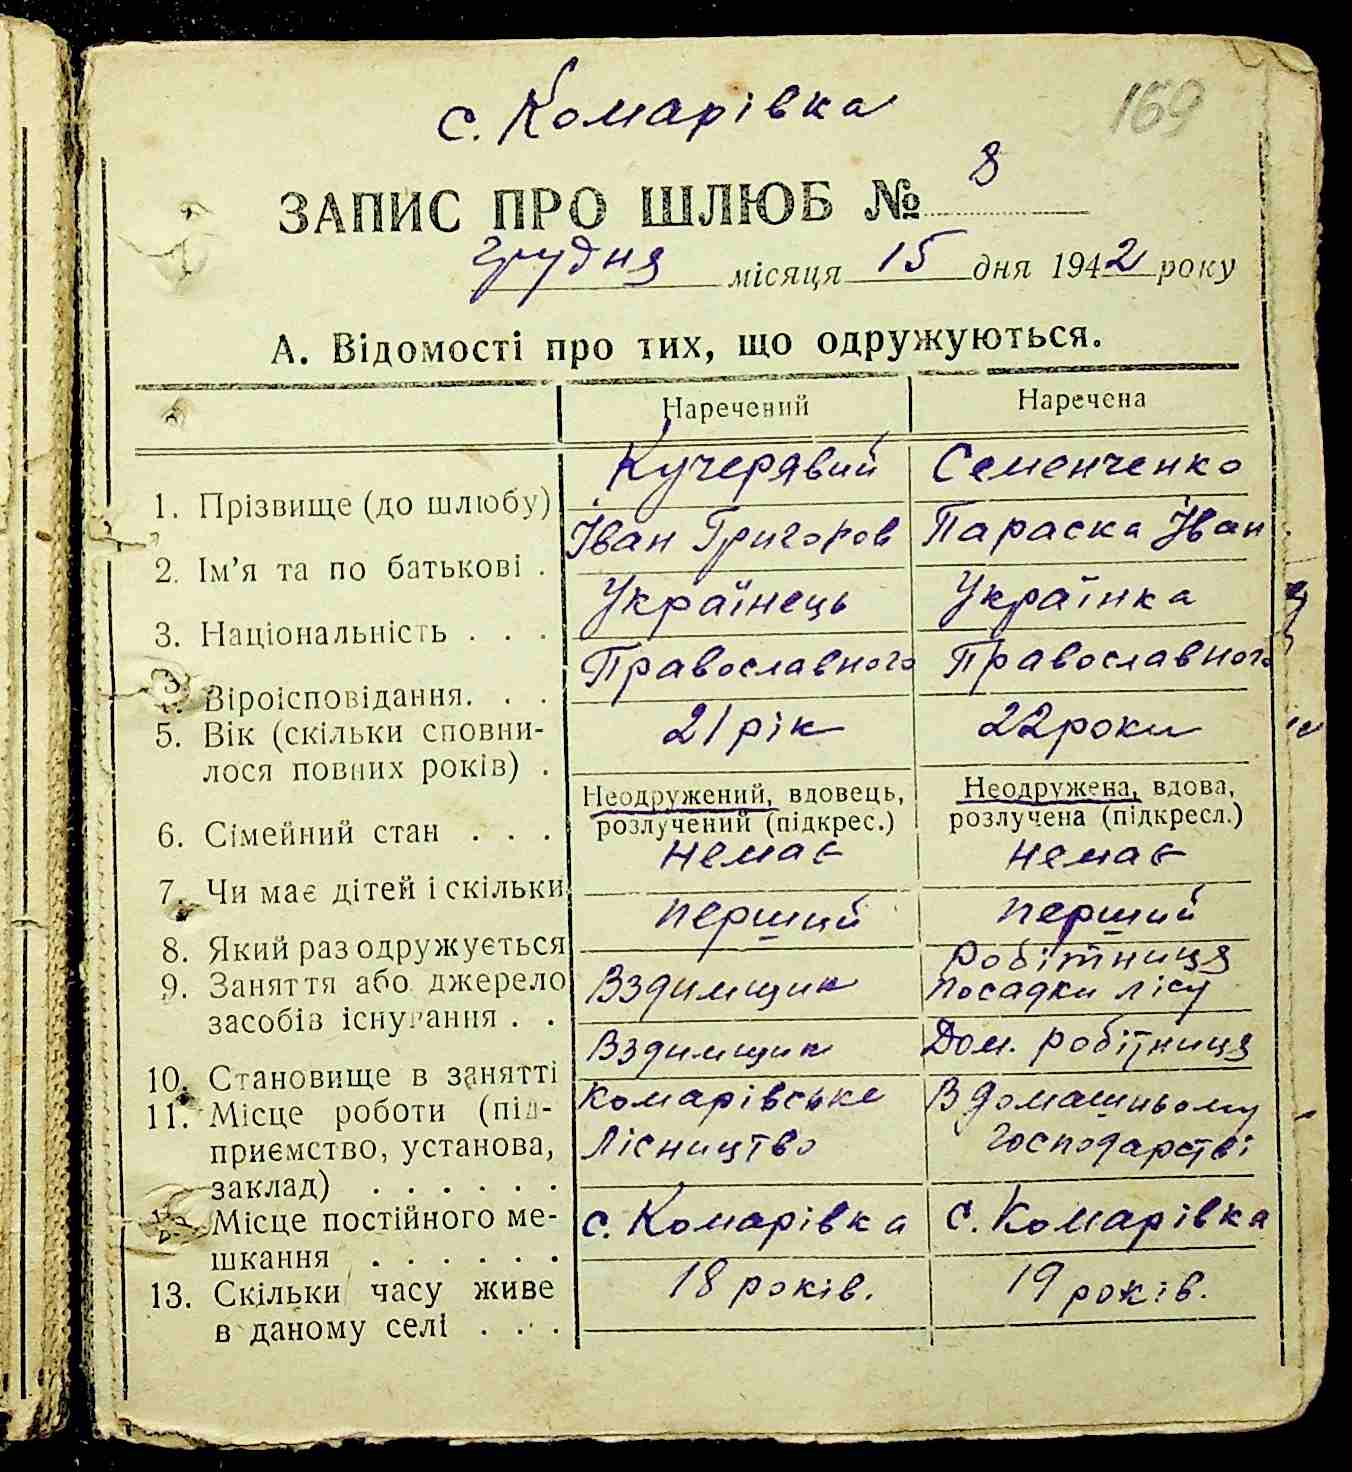 с. Комарівка
169
ЗАПИС ПРО ШЛЮБ № 8
грудня місяця 15 дня 1942 року
А. Відомості про тих, що одружуються.
Наречений Наречена
1. Прізвище (до шлюбу) Кучерявий Семенченко
2. Ім'я та по батькові . Іван Григоров Параска Іван
3. Національність . . . Українець Українка
Віроісповідання. . . Православного Православного
5. Вік (скільки сповни-
лося повних років) . 21 рік 22 роки
6. Сімейний стан . . . Неодружений, вдовець, Неодружена, вдова,
розлучений (підкрес.) розлучена (підкресл.)
7. Чи має дітей і скільки немає немає
8. Який раз одружується перший перший
9. Заняття або джерело Вздимщик Робітниця
засобів існування . . посадки лісу
10. Становище в занятті Вздимщик Дом. робітниця
11. Місце роботи (під- Комарівське В домашньому
приємство, установа, лісництво господарстві
заклад) . . . . . .
Місце постійного ме- с. Комарівка с. Комарівка
шкання . . . . . .
13. Скільки часу живе 18 років. 19 років.
в даному селі . . .